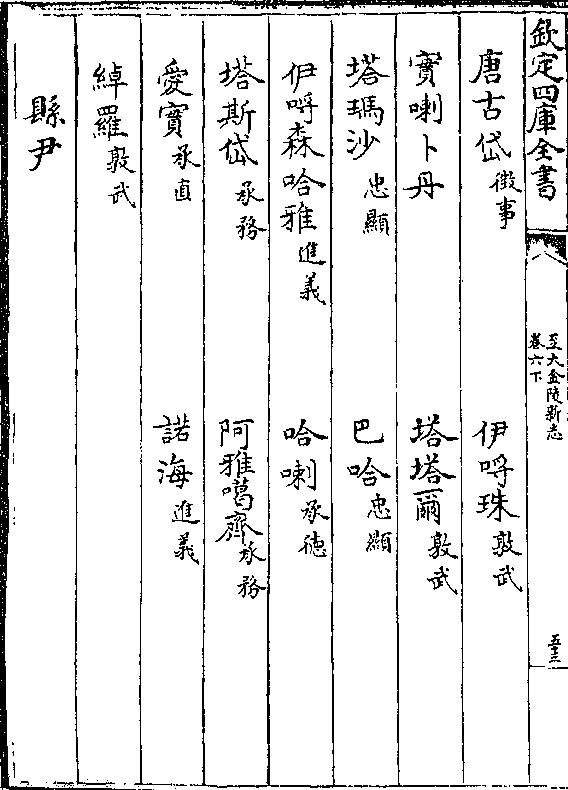 欽定四庫全書
至大金陵新志
卷六下
五十三
唐古岱徴事　伊嘑珠敦武
實喇卜丹　塔塔爾敦武
塔瑪沙忠顯　巴哈忠顯
伊嘑森哈雅進義　哈喇承徳
塔斯岱承務　阿雅噶齊承務
愛實承直　諾海進義
綽羅敦武
縣尹